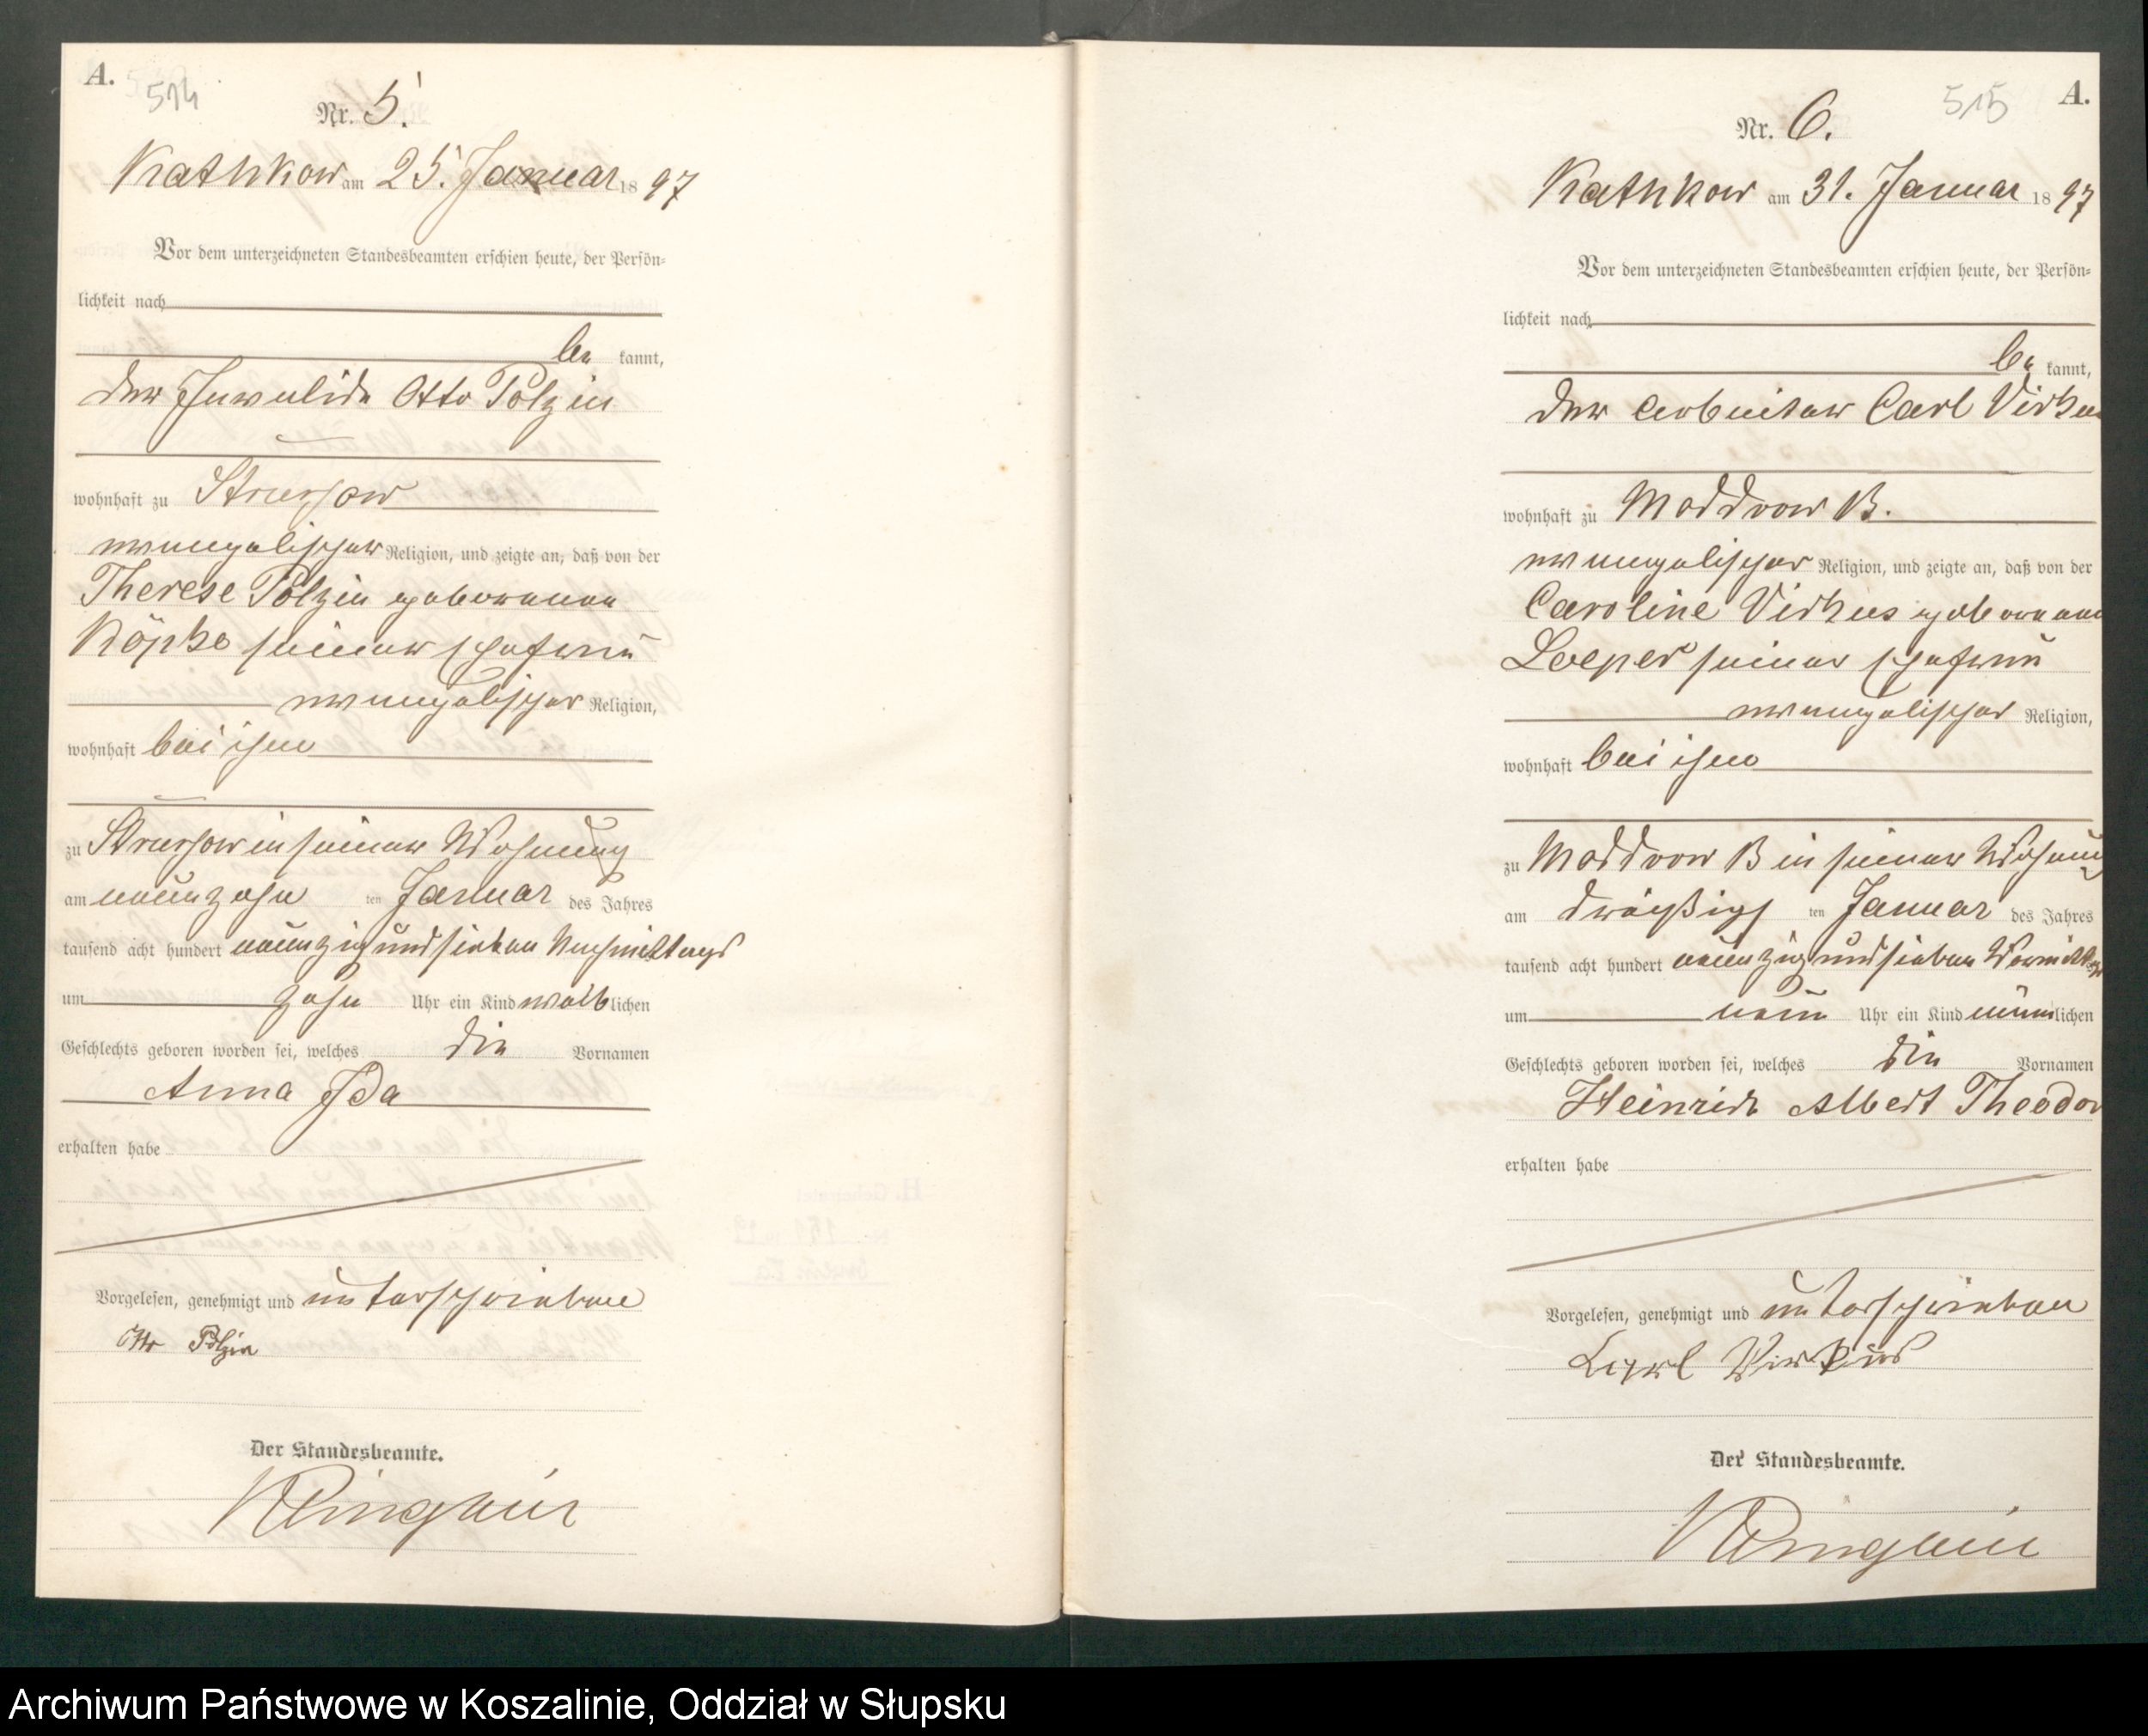 A.
514
Nr. 5.
Kathkow am 25. Januar 1897
Vor dem unterzeichneten Standesbeamten erschien heute, der Persön-
lichkeit nach
be kannt,
der Invalide Otto Polzin
wohnhaft zu Strussow
evangelischer Religion, und zeigte an, daß von der
Therese Polzin geborenen
Köpke seiner Ehefrau
evangelischer Religion,
wohnhaft bei ihm
zu Strussow in seiner Wohnung
am neunzehn ten Januar des Jahres
tausend acht hundert neunzig und sieben Nachmittags
um zehn Uhr ein Kind weiblichen
Geschlechts geboren worden sei, welches die Vornamen
Anna Ida
erhalten habe
Vorgelesen, genehmigt und unterschrieben
Otto Polzin
Der Standesbeamte.
A.
515
Nr. 6.
Kathkow am 31. Januar 1897
Vor dem unterzeichneten Standesbeamten erschien heute, der Persön-
lichkeit nach
be kannt,
der Arbeiter Carl Virkus
wohnhaft zu Moddrow B.
evangelischer Religion, und zeigte an, daß von der
Caroline Virkus geborenen
Loeper seiner Ehefrau
evangelischer Religion,
wohnhaft bei ihm
zu Moddrow B in seiner Wohnung
am dreißigs ten Januar des Jahres
tausend acht hundert neunzig und sieben Vormittags
um neun Uhr ein Kind männlichen
Geschlechts geboren worden sei, welches die Vornamen
Heinrich Albert Theodor
erhalten habe
Vorgelesen, genehmigt und unterschrieben
Karl Virkus
Der Standesbeamte.
Archiwum Państwowe w Koszalinie, Oddział w Słupsku